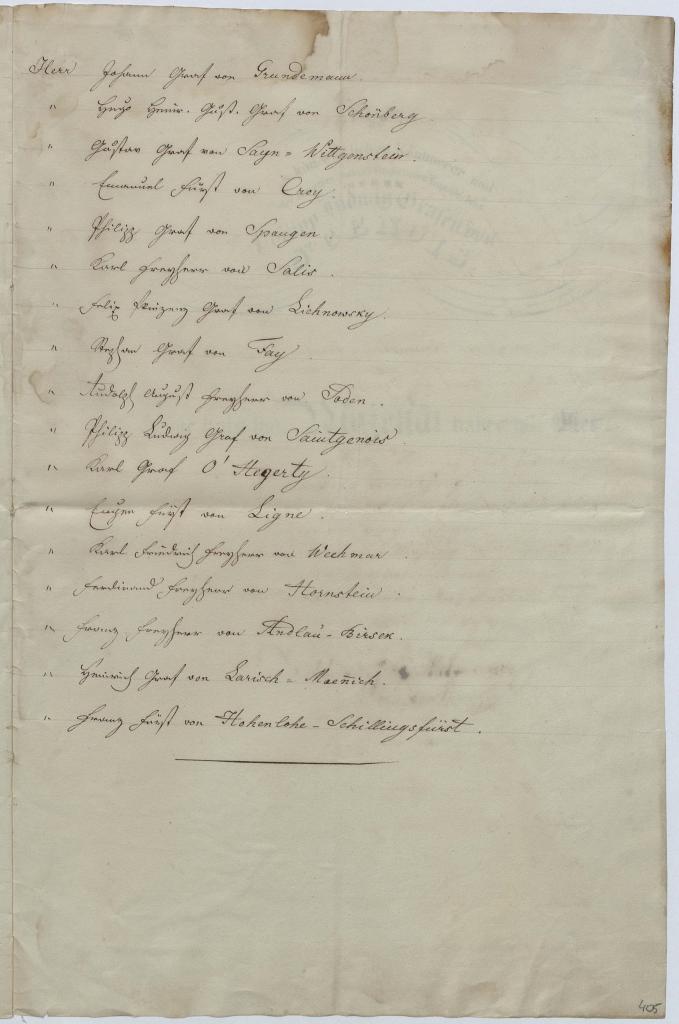 Herr Johann Graf von Grundemann.
" Hugo Heinr. Gust. Graf von Schönberg
" Gustav Graf von Sayn=Wittgenstein.
" Emanuel Fürst von Croy
" Philipp Graf von Spangen.
" Karl Freyherr von Salis.
" Felix Prinzen Graf von Lichnowsky.
" Stephan Graf von Fay.
" Rudolph August Freyherr von Poden.
" Philipp Ludwig Graf von Saintgenois.
" Karl Graf O'Hegerty.
" Eugen Fürst von Ligne.
" Karl Friedrich Freyherr von Wechmar.
" Ferdinand Freyherr von Hornstein.
" Franz Freyherr von Andlau-Birsek.
" Heinrich Graf von Larisch=Moennich.
" Franz Fürst von Hohenlohe-Schillingsfürst.
405